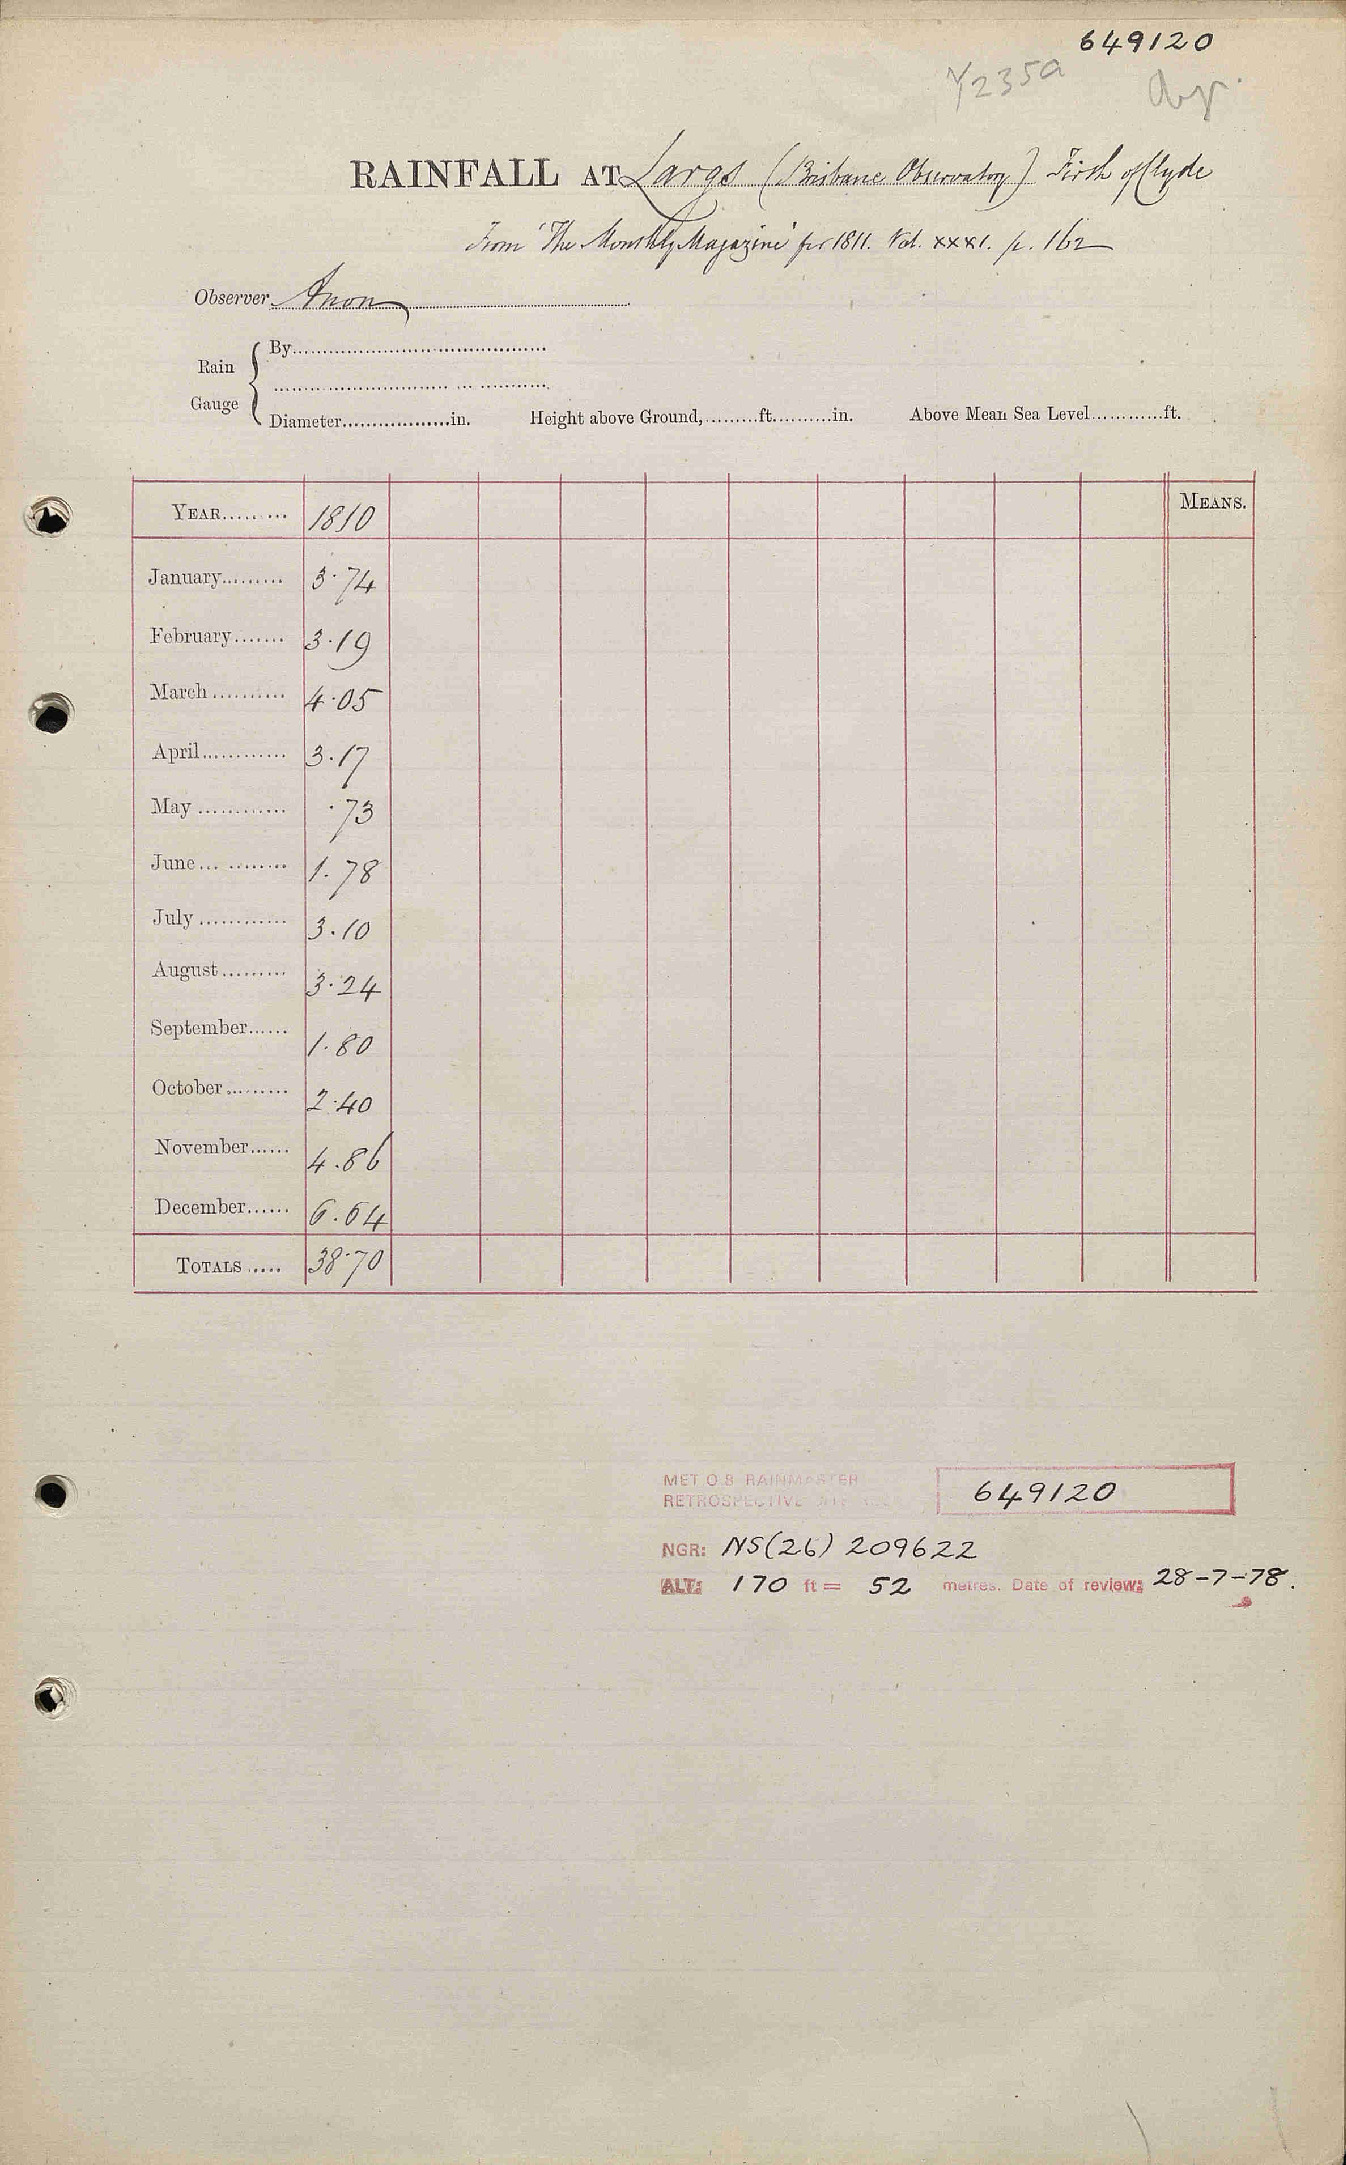 649120
Y235a
RAINFALL AT Largs (Brisbane Observatory) Firth of Clyde
From 'The Monthly Magazine' for 1811. Vol. XXXI. p. 162
Observer Anon
Rain Gauge { By
Diameter in. Height above Ground, ft. in. Above Mean Sea Level ft.
YEAR 1810 MEANS.
January 3.74
February 3.19
March 4.05
April 3.17
May .73
June 1.78
July 3.10
August 3.24
September 1.80
October 2.40
November 4.86
December 6.64
TOTALS 38.70
MET O.8 RAINMASTER
RETROSPECTIVE 649120
NGR: NS(26) 209622
ALT: 170 ft = 52 metres. Date of review: 28-7-78.